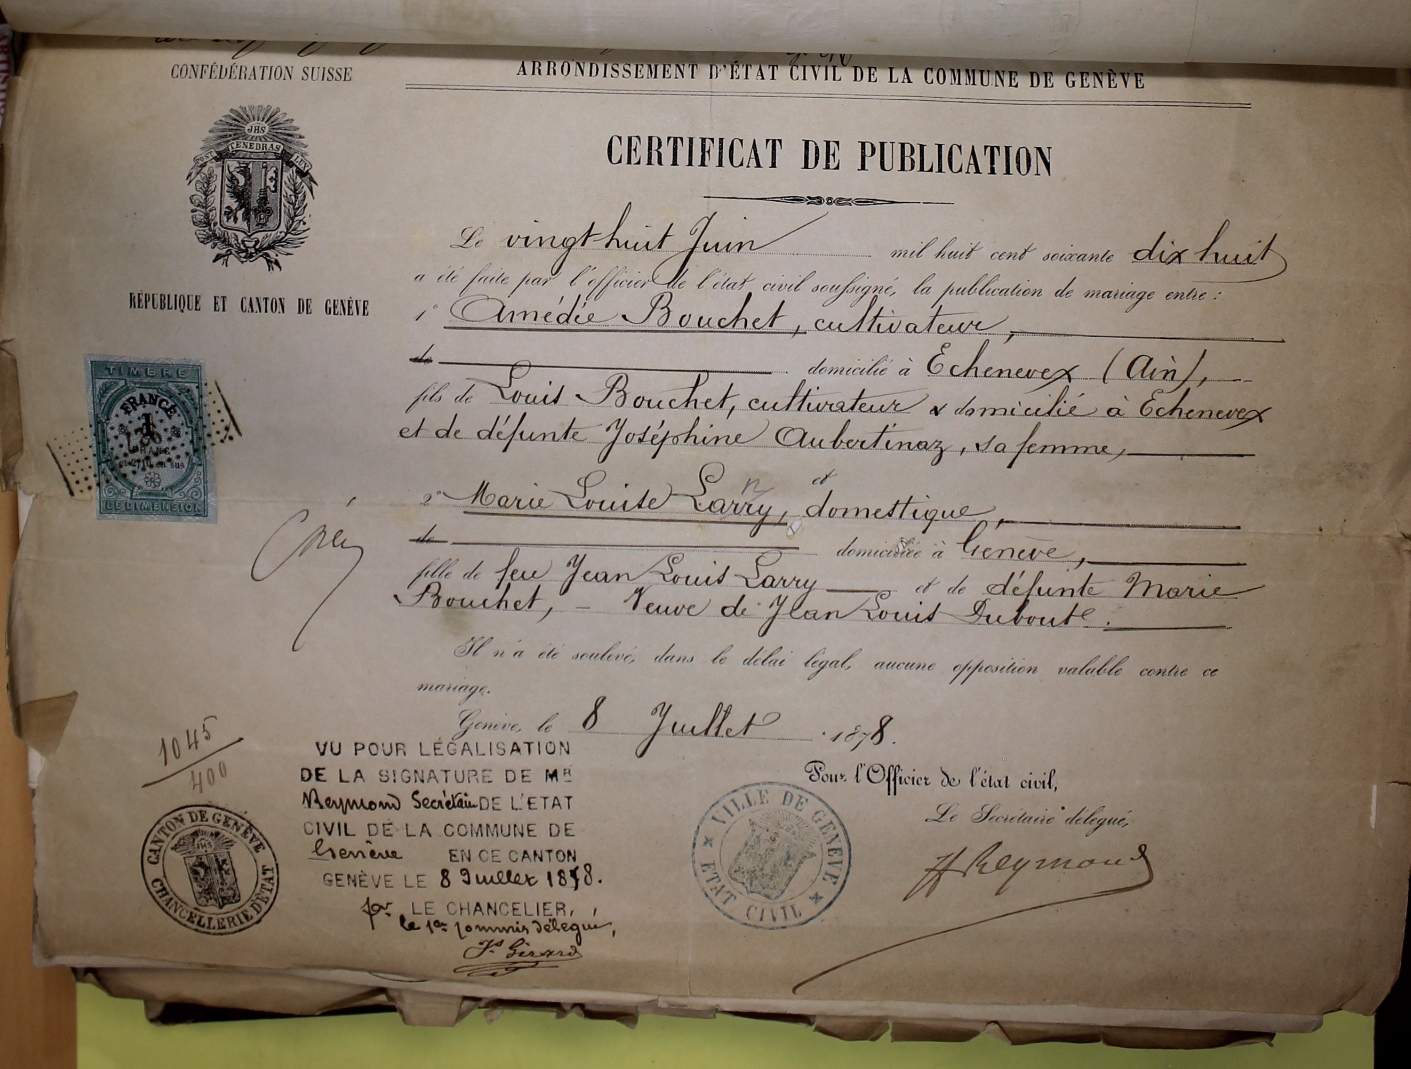 CONFÉDÉRATION SUISSE
ARRONDISSEMENT D'ÉTAT CIVIL DE LA COMMUNE DE GENÈVE
JHS
POST TENEBRAS LUX
RÉPUBLIQUE ET CANTON DE GENÈVE
CERTIFICAT DE PUBLICATION
Le vingt huit Juin mil huit cent soixante dix huit
a été faite par l'officier de l'état civil soussigné, la publication de mariage entre:
1° Amédée Bouchet, cultivateur,
de domicilié à Echenevex (Ain),
fils de Louis Bouchet, cultivateur & domicilié à Echenevex
et de défunte Joséphine Aubertinaz, sa femme,
et
2° Marie Louise Larry, domestique,
n
de domiciliée à Genève,
fille de feu Jean Louis Larry et de défunte Marie
Bouchet, - Veuve de Jean Louis Duboute.
Il n'a été soulevé, dans le délai légal, aucune opposition valable contre ce
mariage.
Genève, le 8 Juillet 1878.
Pour l'Officier de l'état civil,
Le Secrétaire délégué,
H Reymond
TIMBRE
FRANCE
1
FRANC
DE DIMENSION
1045
400
VU POUR LÉGALISATION
DE LA SIGNATURE DE MR
Reymond Secrétaire DE L'ETAT
CIVIL DE LA COMMUNE DE
Genève EN CE CANTON
GENÈVE LE 8 Juillet 1878.
par LE CHANCELIER,
le 1er commis délégué,
Js Gérard
CANTON DE GENÈVE
CHANCELLERIE D'ETAT
VILLE DE GENEVE
ETAT CIVIL